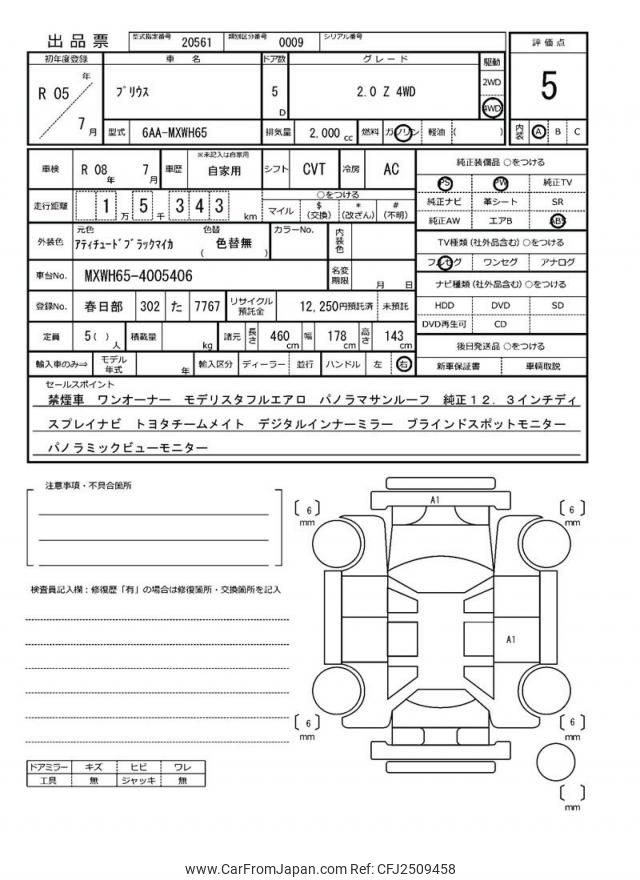 出品票 型式指定番号 20561 類別区分番号 0009 シリアル番号
初年度登録 車名 ドア数 グレード 駆動 評価点
R 05 年 7 月 プリウス 5 D 2.0 Z 4WD 2WD 4WD 5
型式 6AA-MXWH65 排気量 2,000 cc 燃料 ガソリン 軽油 ( ) 内装 A B C
車検 R 08 年 7 月 車歴 ※未記入は自家用 自家用 シフト CVT 冷房 AC
走行距離 1 万 5 千 3 4 3 km ○をつける マイル $ (交換) * (改ざん) # (不明)
外装色 元色 アティチュードブラックマイカ 色替 ( 色替無 ) カラーNo. 内装色
車台No. MXWH65-4005406 名変期限 月 日
登録No. 春日部 302 た 7767 リサイクル預託金 12,250円預託済 未預託
定員 5( ) 人 積載量 kg 諸元 長さ 460 cm 幅 178 cm 高さ 143 cm
輸入車のみ⇒ モデル年式 年 輸入区分 ディーラー 並行 ハンドル 左 右
純正装備品 ○をつける
PS PW 純正TV
純正ナビ 革シート SR
純正AW エアB ABS
TV種類(社外品含む) ○をつける
フルセグ ワンセグ アナログ
ナビ種類(社外品含む) ○をつける
HDD DVD SD
DVD再生可 CD
後日発送品 ○をつける
新車保証書 車輌取説
セールスポイント
禁煙車 ワンオーナー モデリスタフルエアロ パノラマサンルーフ 純正12.3インチディ
スプレイナビ トヨタチームメイト デジタルインナーミラー ブラインドスポットモニター
パノラミックビューモニター
注意事項・不具合箇所
検査員記入欄:修復歴「有」の場合は修復箇所・交換箇所を記入
ドアミラー キズ ヒビ ワレ
工具 無 ジャッキ 無
A1
[ 6 ] mm
[ 6 ] mm
A1
[ 6 ] mm
[ 6 ] mm
[ ] mm
www.CarFromJapan.com Ref: CFJ2509458